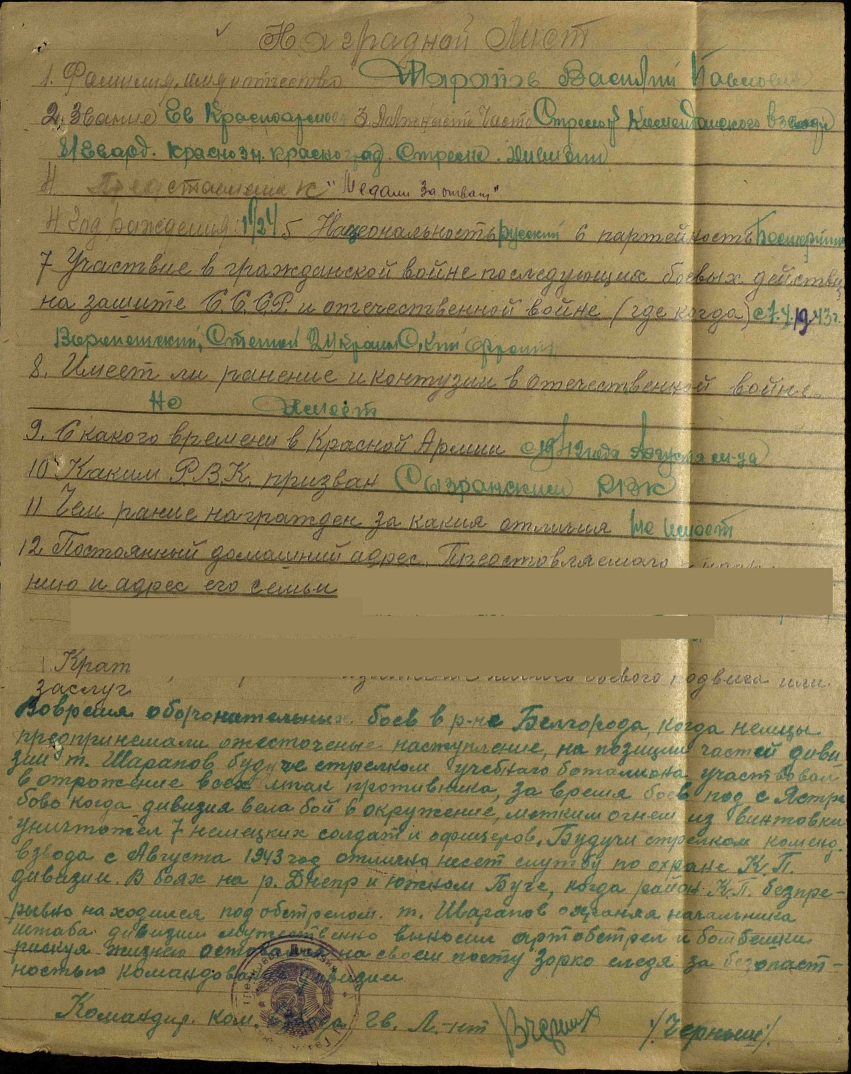 Наградной Лист
1. Фамилия, имя отчество Шарапов Василий Павлович
2. Звание Гв Красноармеец 3. Должность Часть Стрелок Комендантского взвода
81 Гвард. Краснозн. Красноград. Стрелк. дивизии
4 Представлен к "Медали За отвагу"
4 Год рождения: 1924 5 Национальность русский 6 партейность
7 Участвие в гражданской войне последующих боевых действи
на защите С.С.С.Р. и отечественной войне (где когда)
Воронежский, Степной 2й Украинский фронт
8. Имеет ли ранение и контузии в отечественной войне.
Не имеет
9. С какого времени в Красной Армии с 1942 года Августа м-за
10 Каким Р.В.К. призван Сызранским РВК
11 Чем ранее награжден за какия отличия не имеет
12. Постоянный домашний адрес. Предоставляемого
нию и адрес его семьи
1. Крат боевого подвига или
заслуг
Вовремя оборонительных боев в р-не Белгорода, когда немцы
предпринемали ожесточеные наступление, на позиции частей диви
зии т. Шарапов будуче стрелком учебнаго баталиона участвовал
в отрожение всех атак противника, за время боев под с Ястре
бово когда дивизия вела бой в окружение, метким огнем из винтовки
уничтожел 7 немецких солдат и офицеров. Будучи стрелком коменд.
взвода с Августа 1943 год отлично несет службу по охране К.П.
дивазии. В боях на р. Днепр и южном Буге, когда район К.П. безпре-
рывно находился под обстрелом. т. Шарапов охраняя начальника
штаба дивизии мужественно выносил артобстрел и бомбежки
рискуя жизней оставался на своем посту Зорко следя за безопаст-
ностью командования дивизии
Командир. ком. взвода Гв. Л-нт /Черных/.